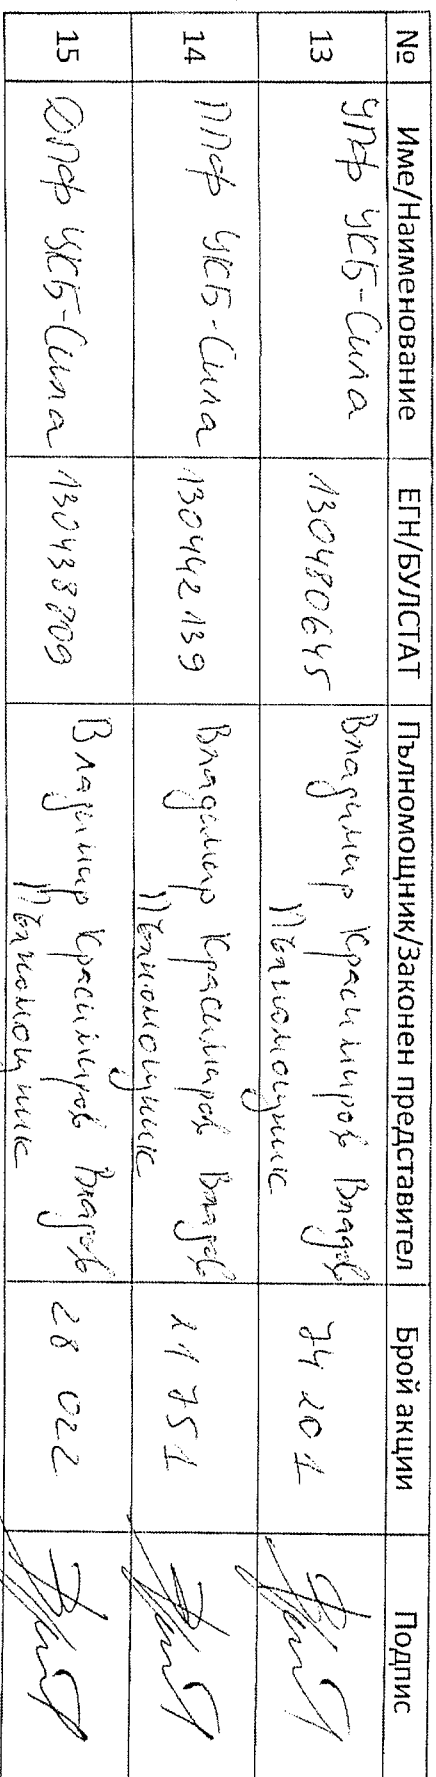 № Име/Наименование ЕГН/БУЛСТАТ Пълномощник/Законен представител Брой акции Подпис
13 УПФ ЦКБ-Сила 130480645 Владимир Красимиров Владов 74 201
Пълномощник
14 ППФ ЦКБ-Сила 130442139 Владимир Красимиров Владов 11 751
Пълномощник
15 ДПФ ЦКБ-Сила 130438809 Владимир Красимиров Владов 28 022
Пълномощник